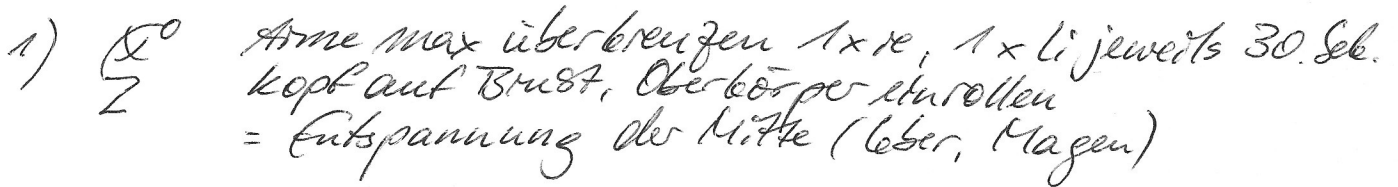 1) Arme max überkreuzen 1x re, 1x li jeweils 30. Sek.
Kopf auf Brust, Oberkörper einrollen
= Entspannung der Mitte (Leber, Magen)